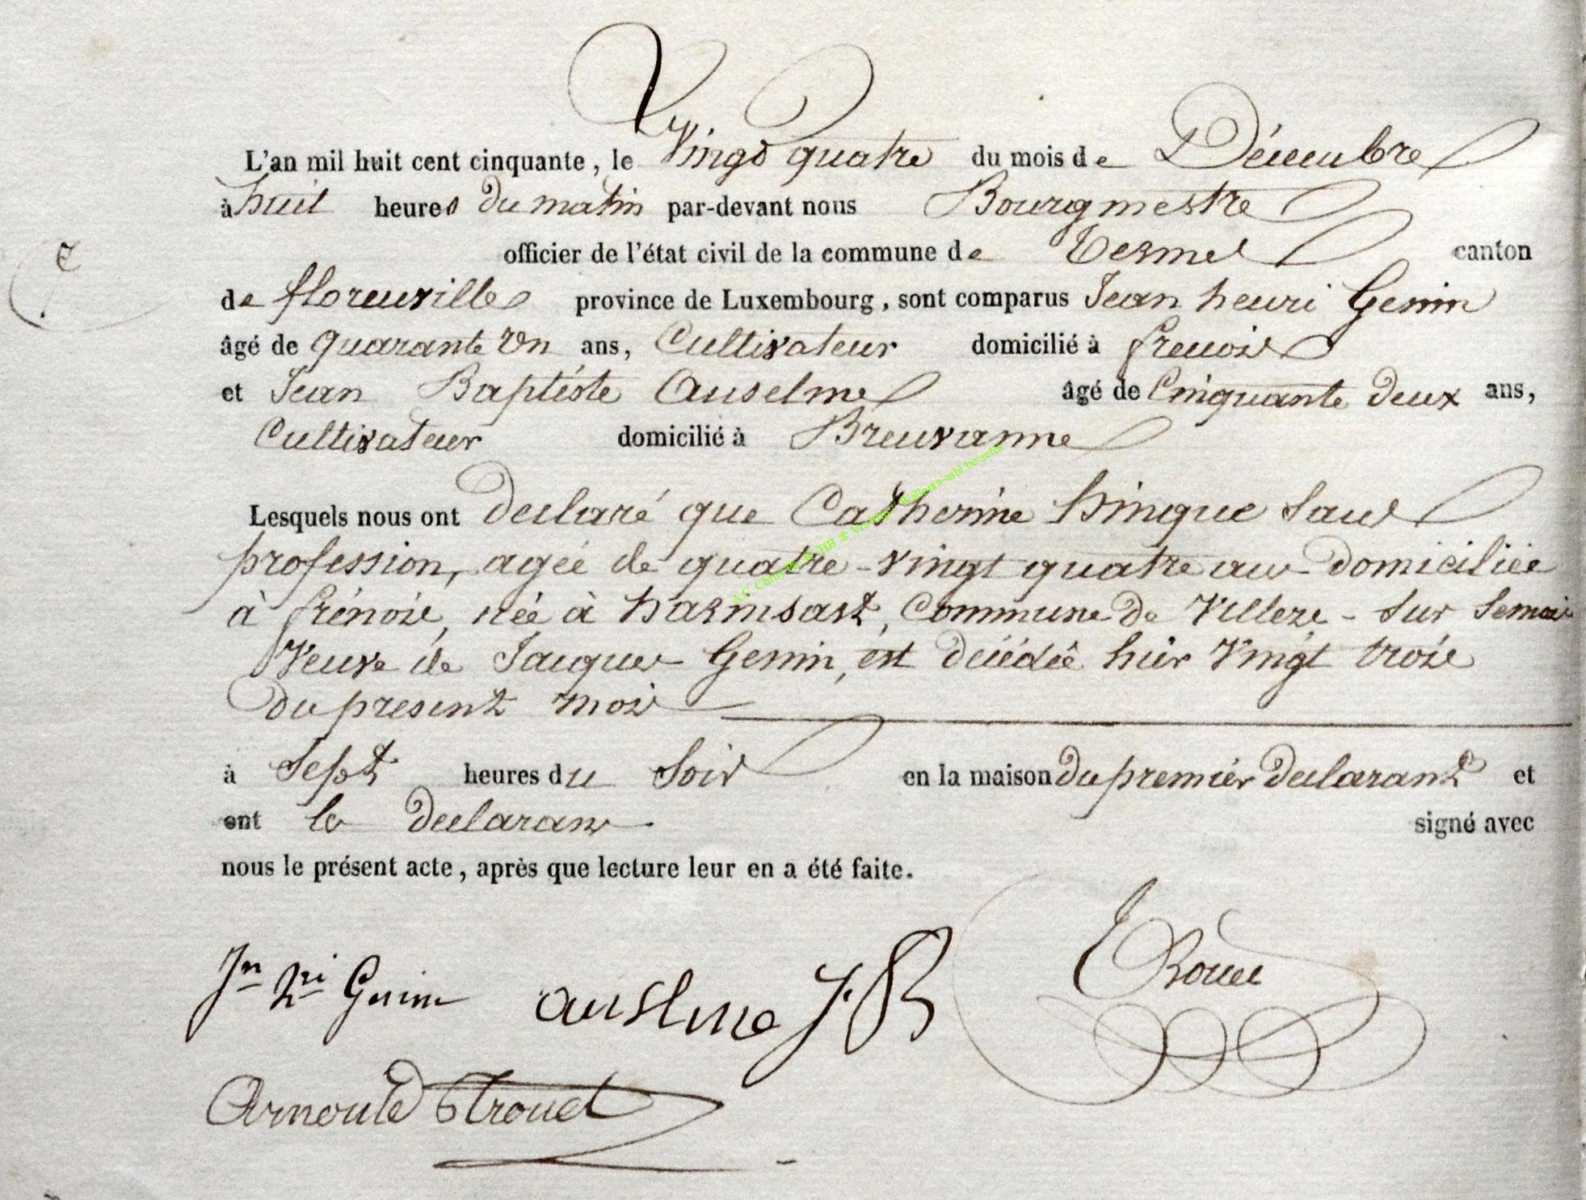 L'an mil huit cent cinquante, le Vingt quatre du mois de Décembre
à huit heures du matin par-devant nous Bourgmestre
officier de l'état civil de la commune de Termes canton
7
de florenville province de Luxembourg, sont comparus Jean henri Genin
âgé de quarante un ans, Cultivateur domicilié à frenois
et Jean Baptiste Anselme âgé de Cinquante deux ans,
Cultivateur domicilié à Breuvanne
Lesquels nous ont declaré que Catherine hinque Sans
profession, agée de quatre-vingt quatre ans domiciliée
à frénois, née à harinsart, Commune de Villeze-sur Semois
Veuve de Jacques Genin, est décédée hier Vingt trois
du present mois
à Sept heures du Soir en la maison du premier declarant et
ont les declarans signé avec
nous le présent acte, après que lecture leur en a été faite.
Jn hri Genin anselme J. B
Arnould